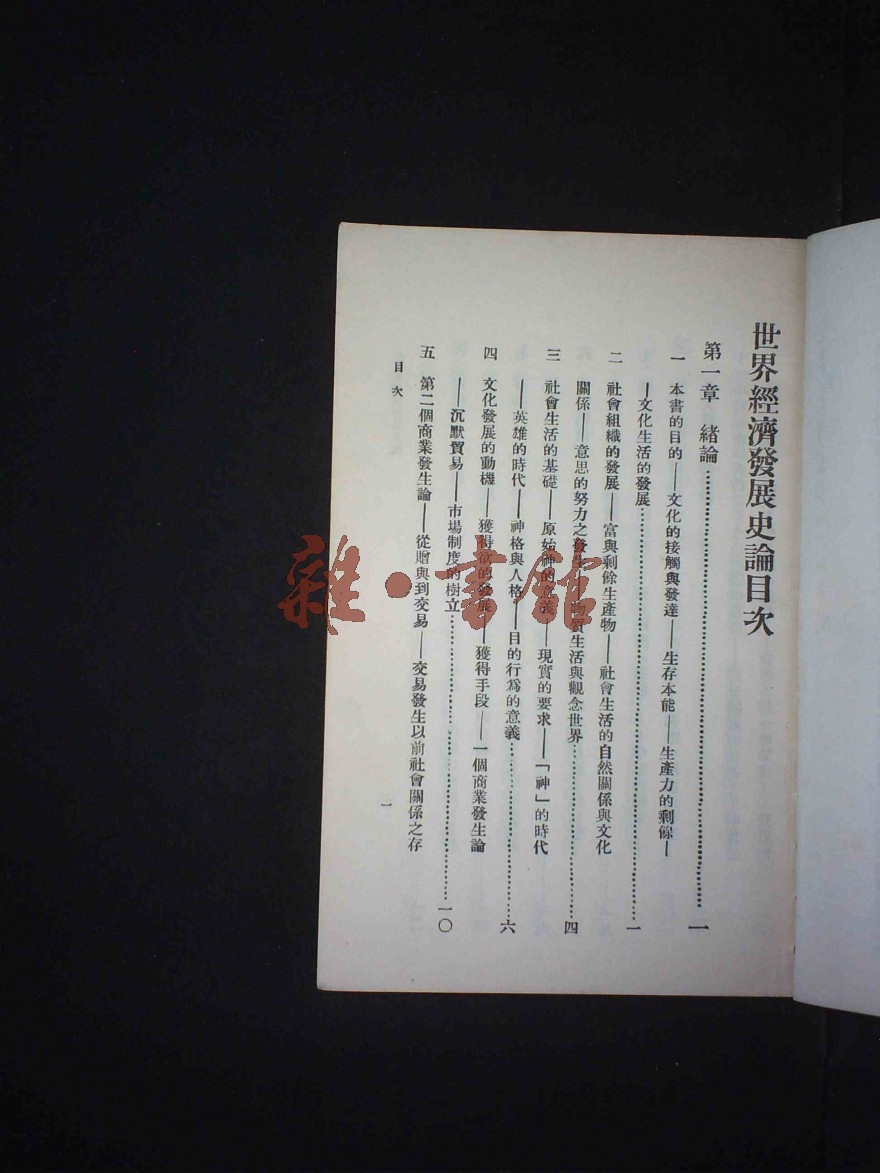 世界經濟發展史論目次
第一章　緒論………一
一　本書的目的——文化的接觸與發達——生存本能——生產力的剩餘—
—文化生活的發展………一
二　社會組織的發展——富與剩餘生產物——社會生活的自然關係與文化
關係——意思的努力之發生——物質生活與觀念世界………四
三　社會生活的基礎——原始神的意義——現實的要求——「神」的時代
——英雄的時代——神格與人格——目的行爲的意義………六
四　文化發展的動機——獲得欲的發展——獲得手段——一個商業發生論
——沉默貿易——市場制度的樹立………一〇
五　第二個商業發生論——從贈與到交易——交易發生以前社會關係之存
目次
一
雜·書館